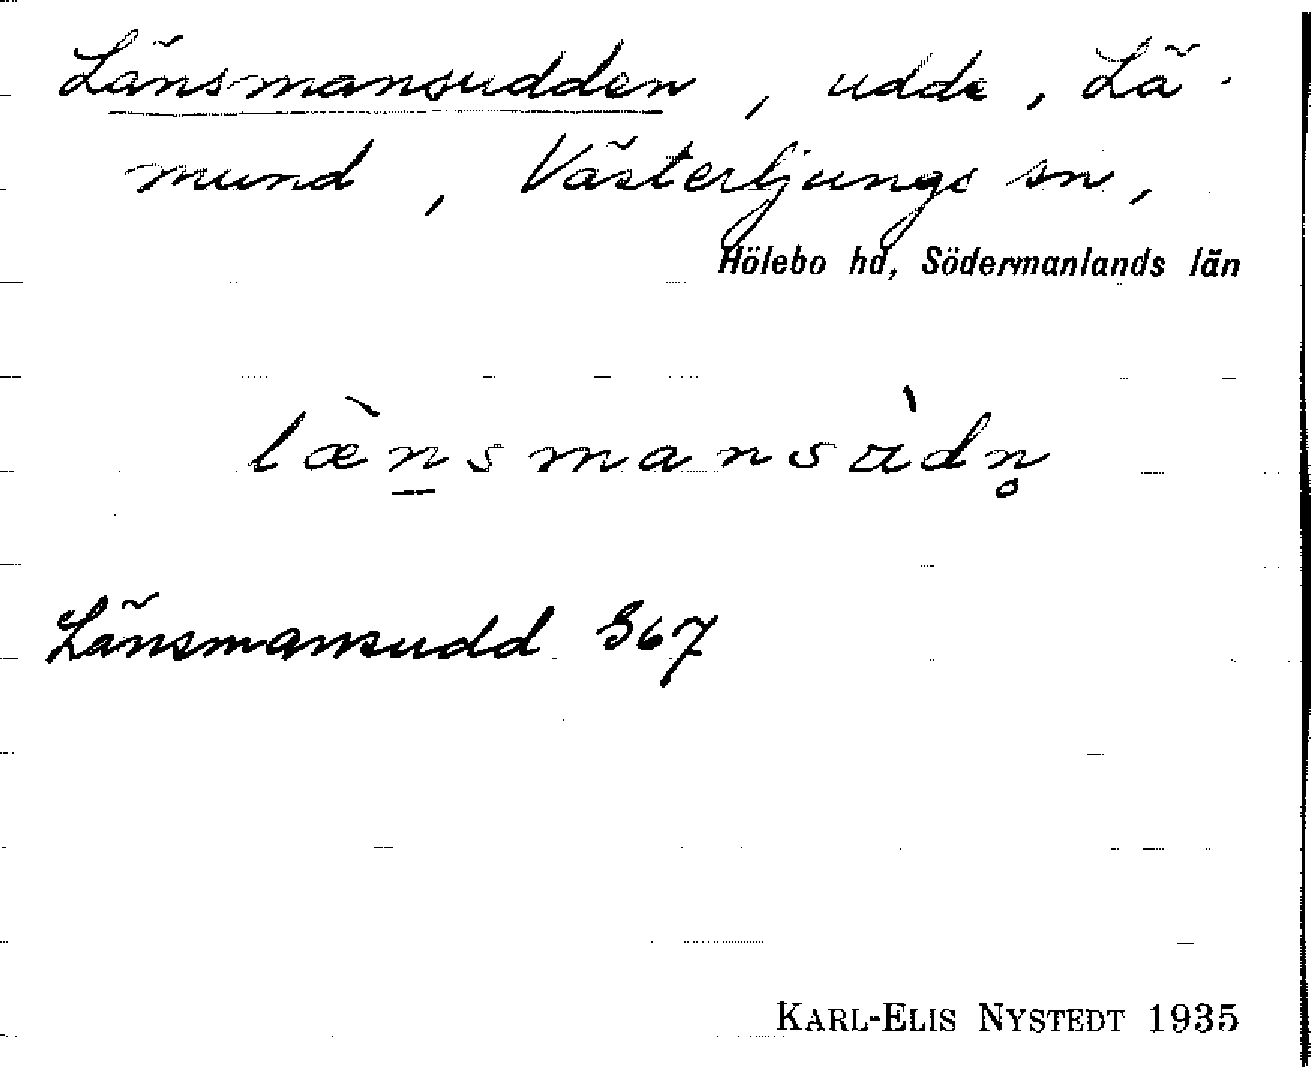 Länsmansudden, udde, Lä-
mund, Västerljungs sn,
Hölebo hd, Södermanlands län
læ̀n̠smansùdn̥
Länsmansudd S67
KARL-ELIS NYSTEDT 1935